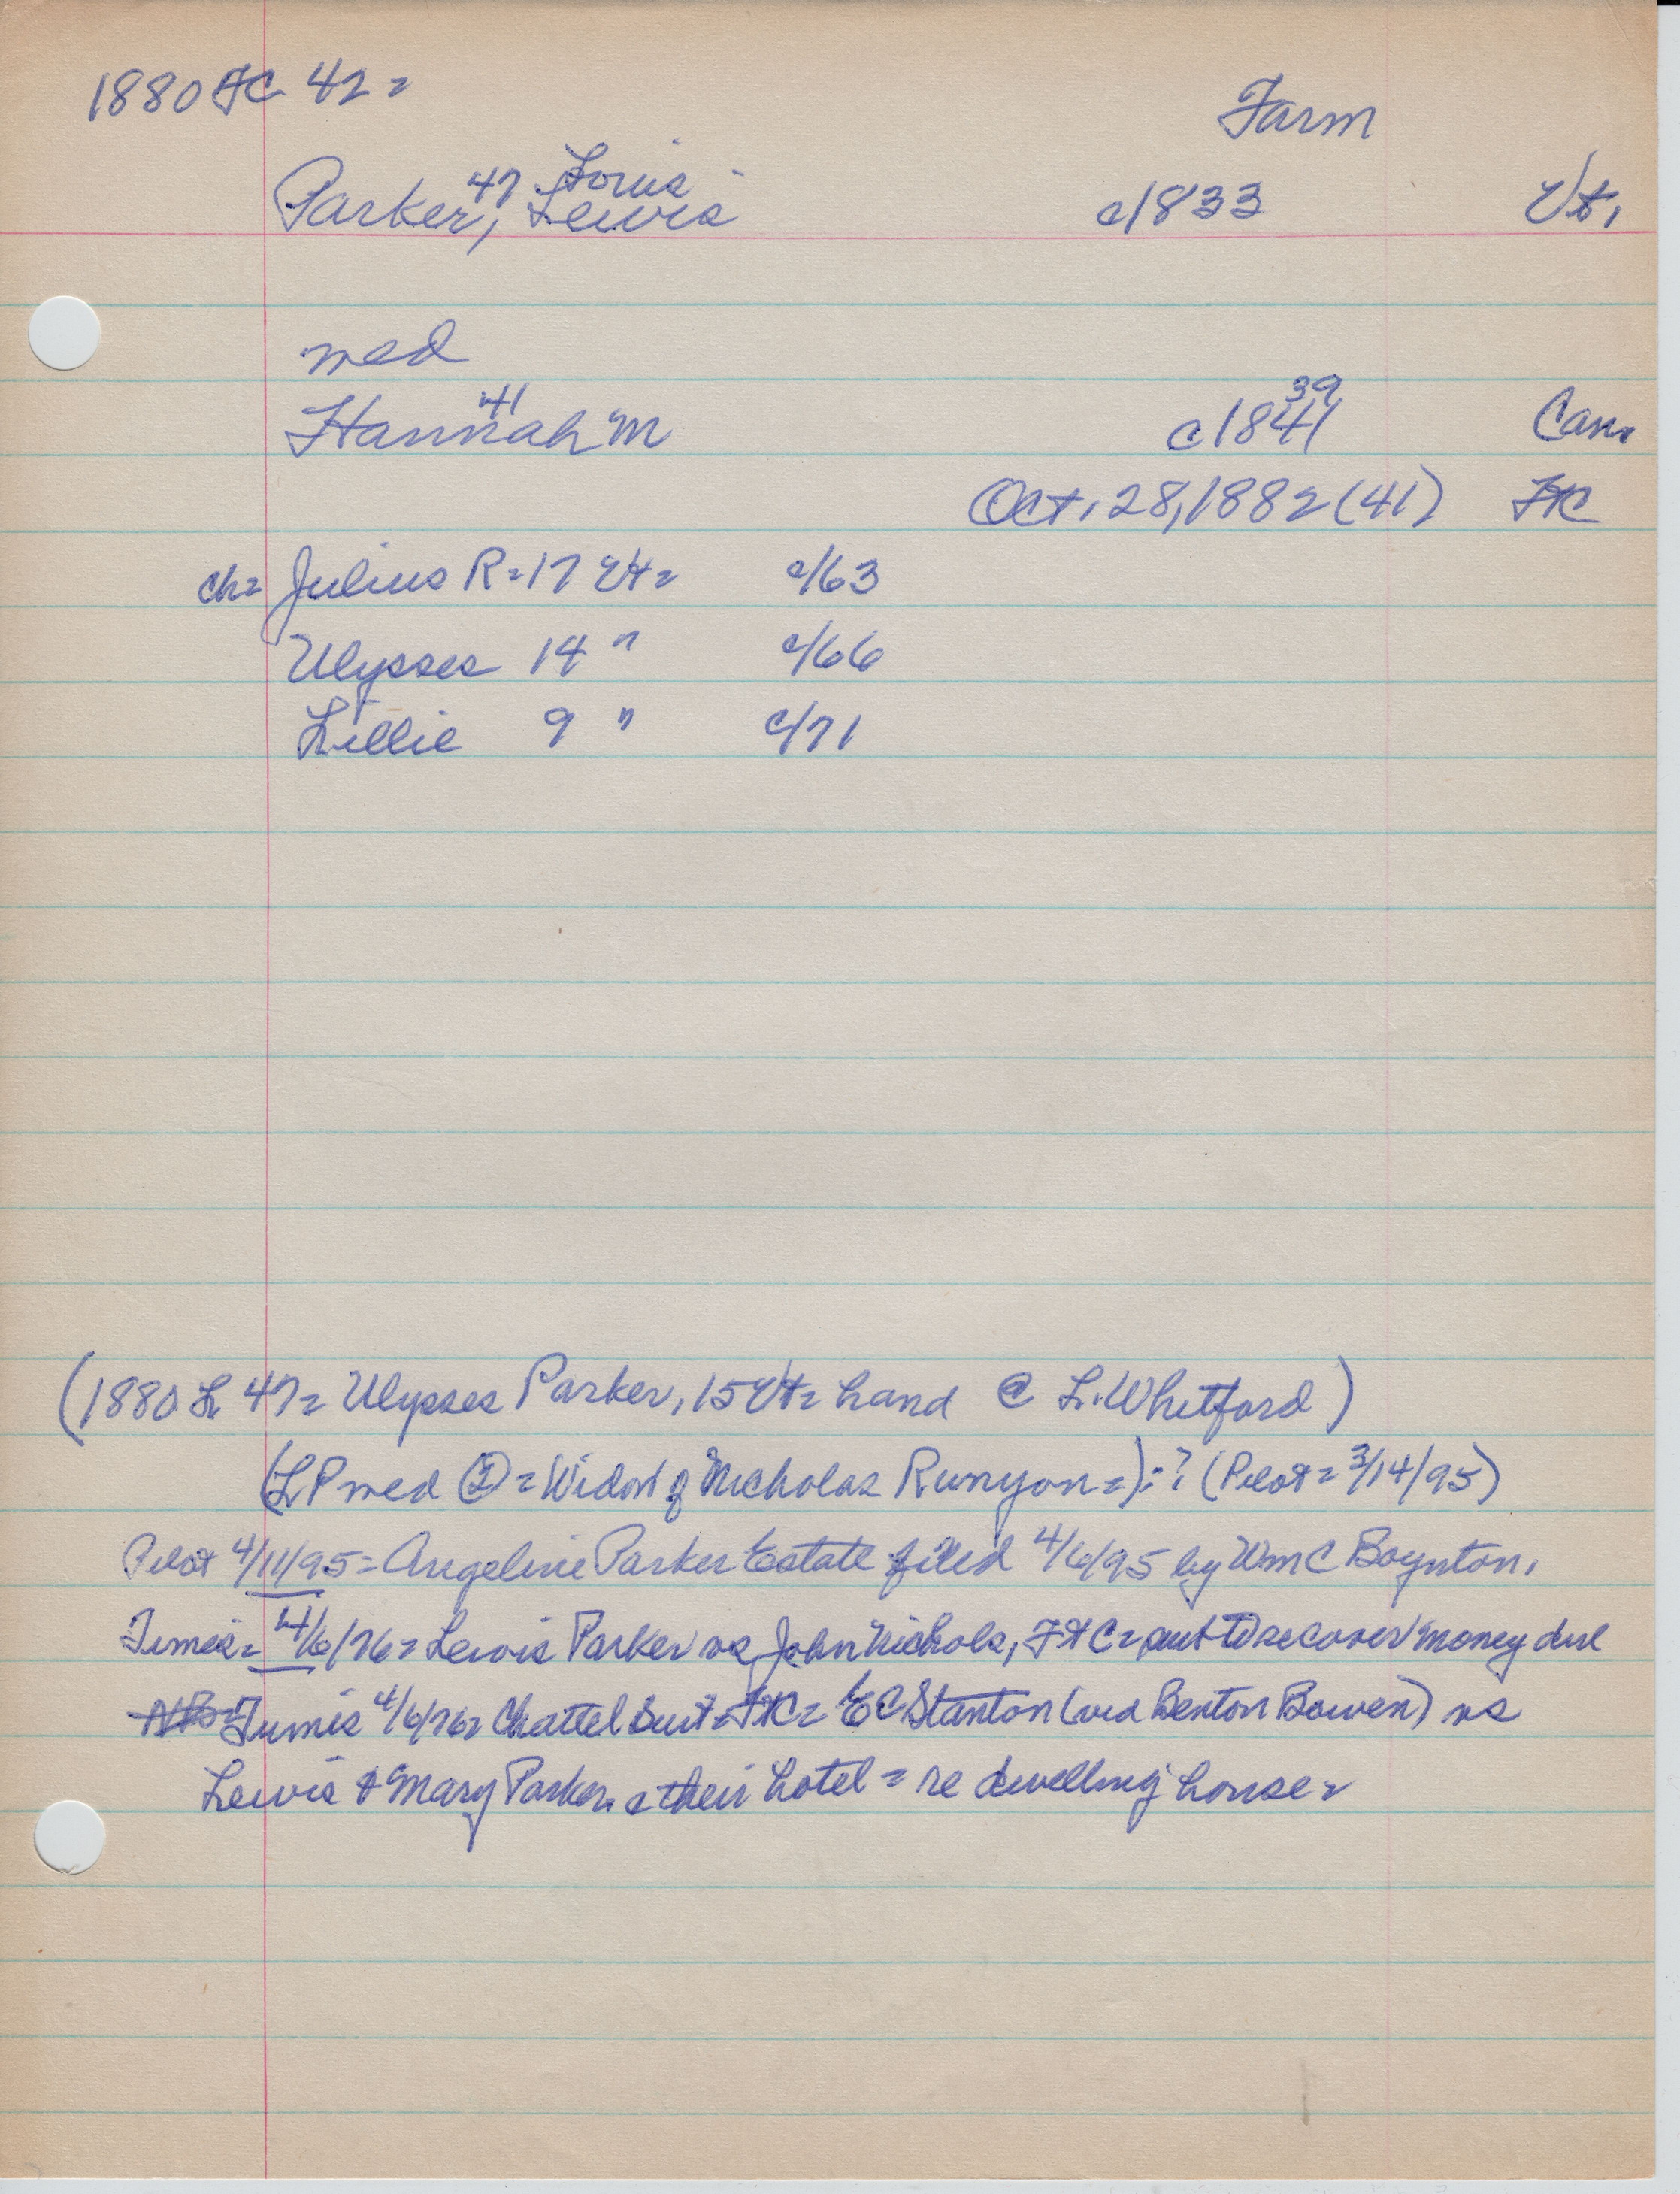 1880 FC 42=
Farm
Louis
Parker, 47 Lewis c1833 Vt.
med
39
Hannah 41 M c1841 Can.
Oct. 28, 1882 (41) FtC
ch= Julius R=17 Vt= c/63
Ulysses 14 " c/66
Lillie 9 " c/71
(1880 L 47= Ulysses Parker, 15 Vt= hand @ L. Whitford)
(LP med ②= Widow of Nicholas Runyon=):? (Pilot= 3/14/95)
Pilot 4/11/95= Angeline Parker Estate filed 4/6/95 by Wm C Boynton.
Times= 4/6/76= Lewis Parker vs John Nichols, FtC= suit to recover money due
Times 4/6/76= Chattel Suit= FtC= E C Stanton (vid Benton Bowen) vs
Lewis & Mary Parker. & their hotel = re dwelling house=